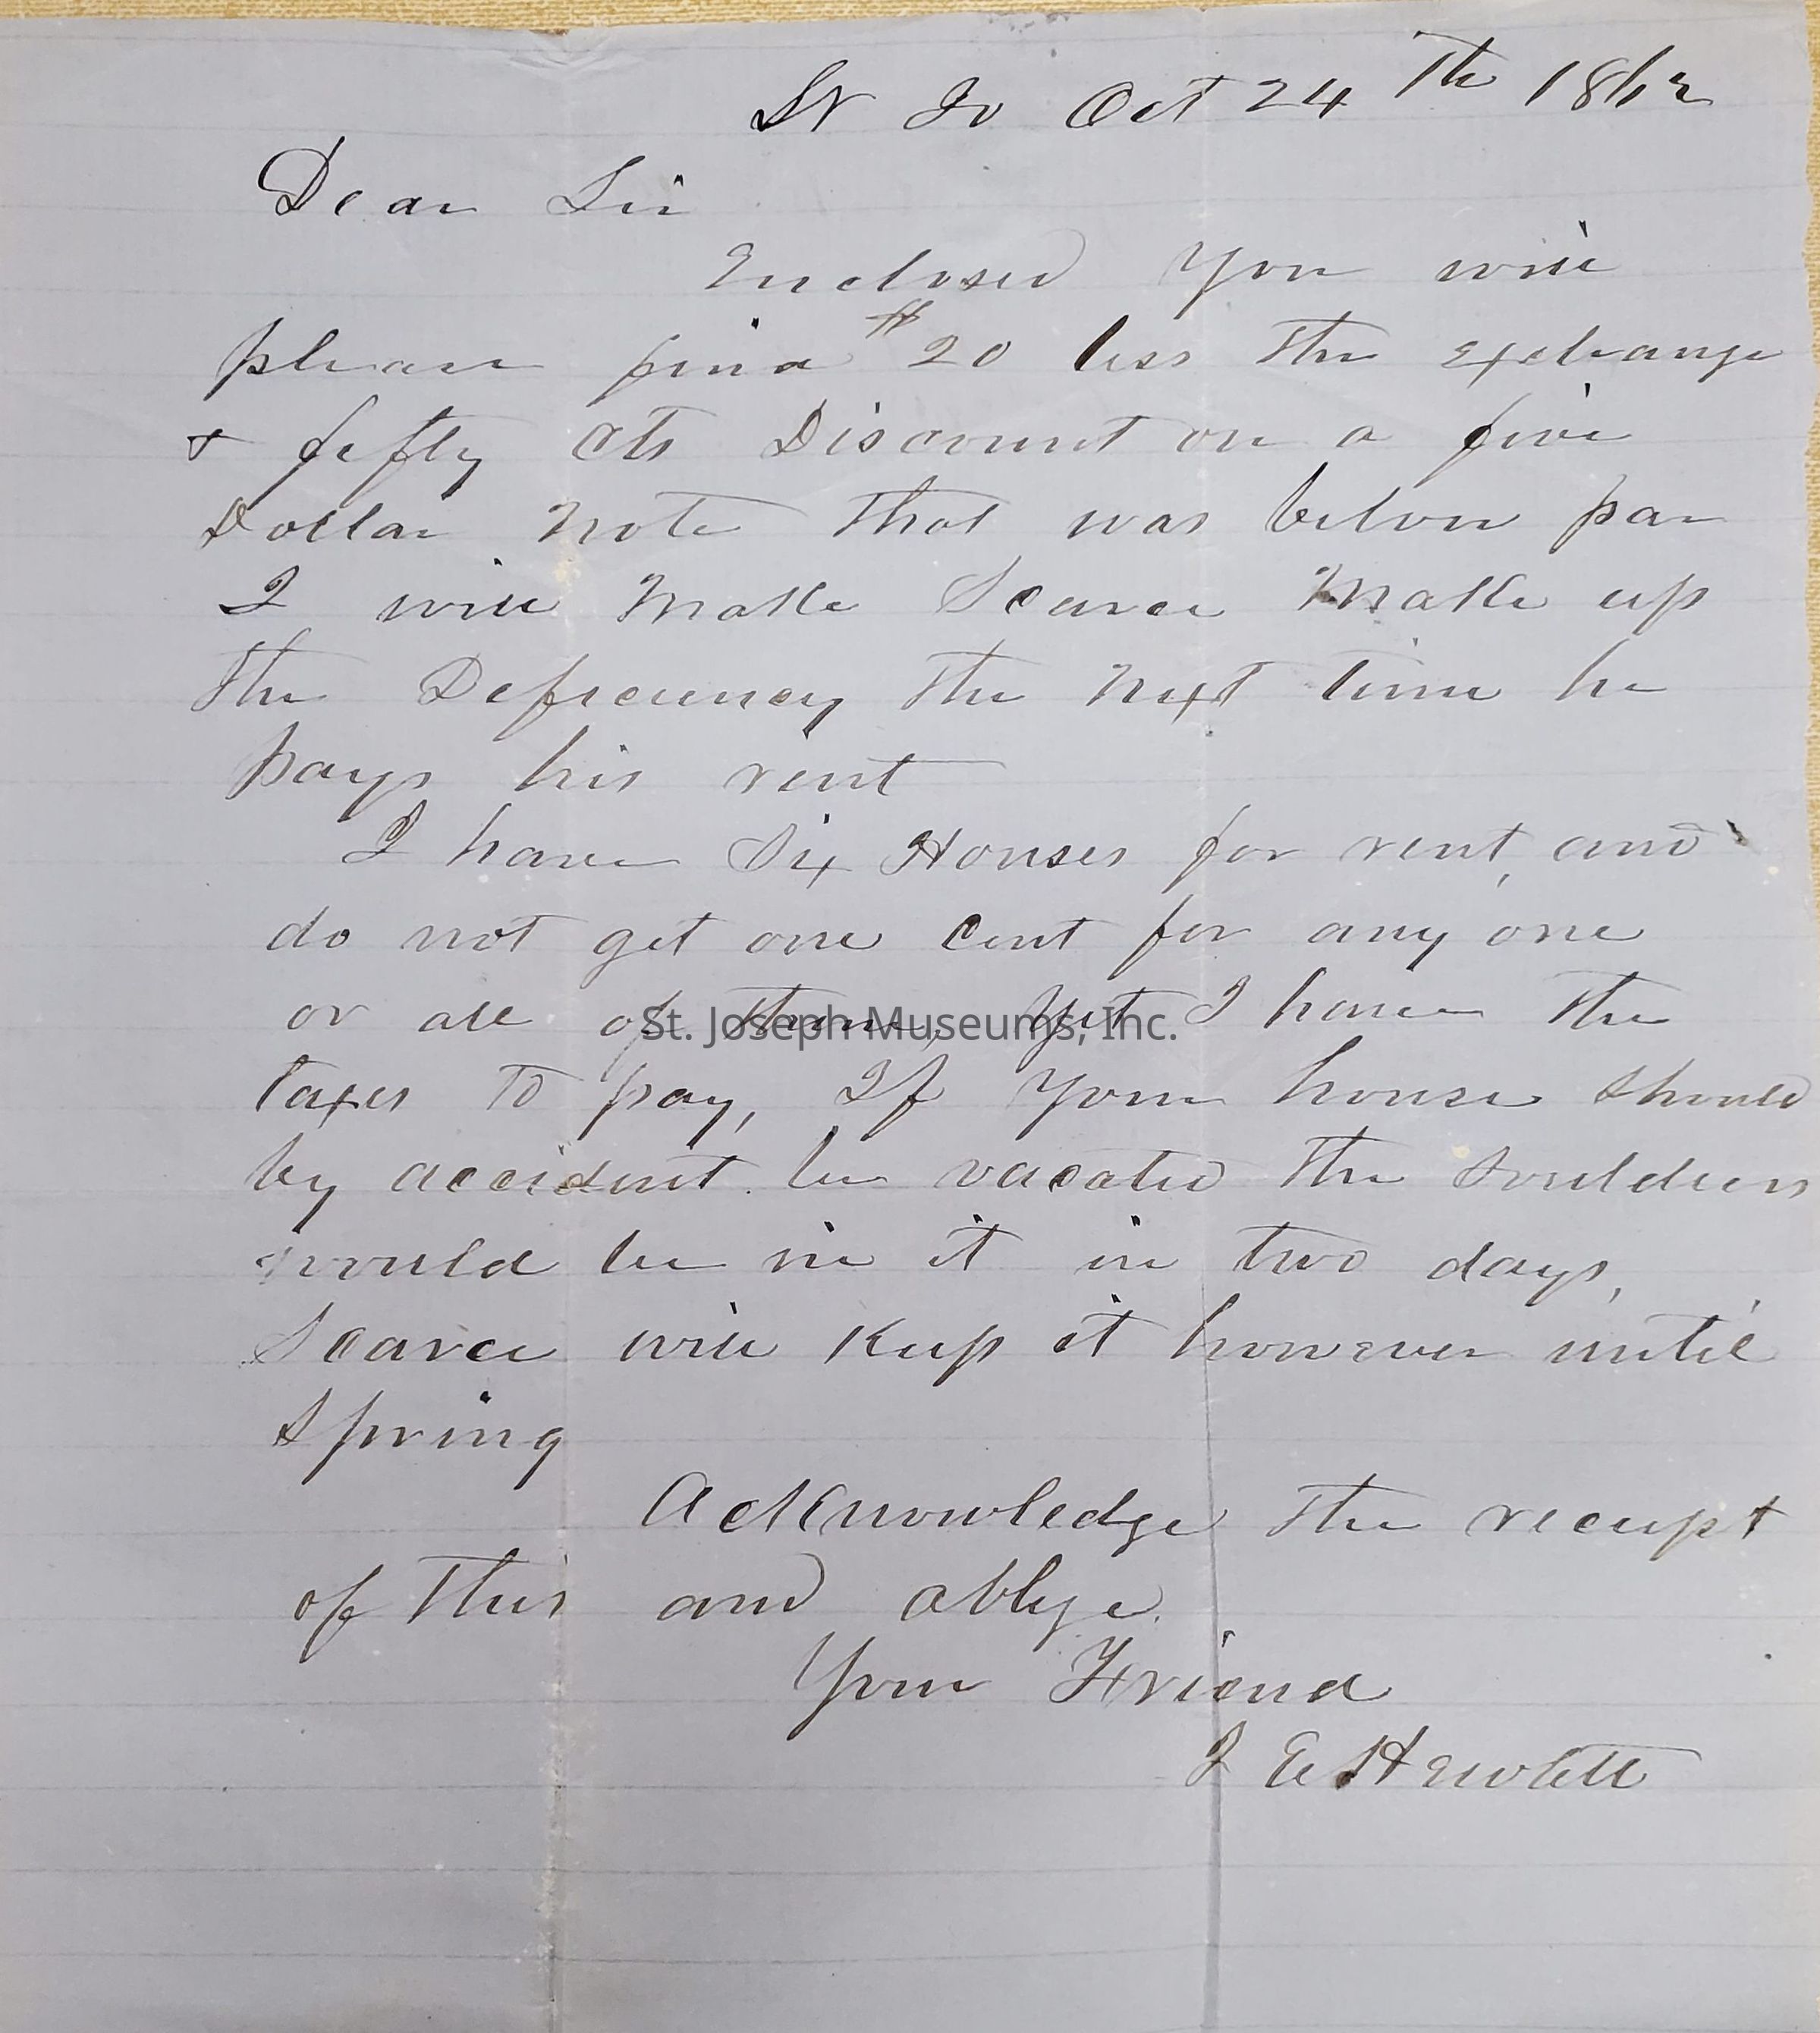 St Jo Oct 24th 1862
Dear Sir
Enclosed you will
please find $20 less the exchange
& fefty cts Discount on a five
Dollar note that was below par
I will make Scarce make up
the Deficiency the next time he
pays his rent
I have Six Houses for rent, and
do not get one cent for any one
or all of them, yet I have the
taxes to pay, If your house should
by accident be vacated the souldiers
would be in it in two days,
Scarce will keep it however until
Spring
Acknowledge the receipt
of this and oblige
Your Friend
J E Hewlett
St. Joseph Museums, Inc.